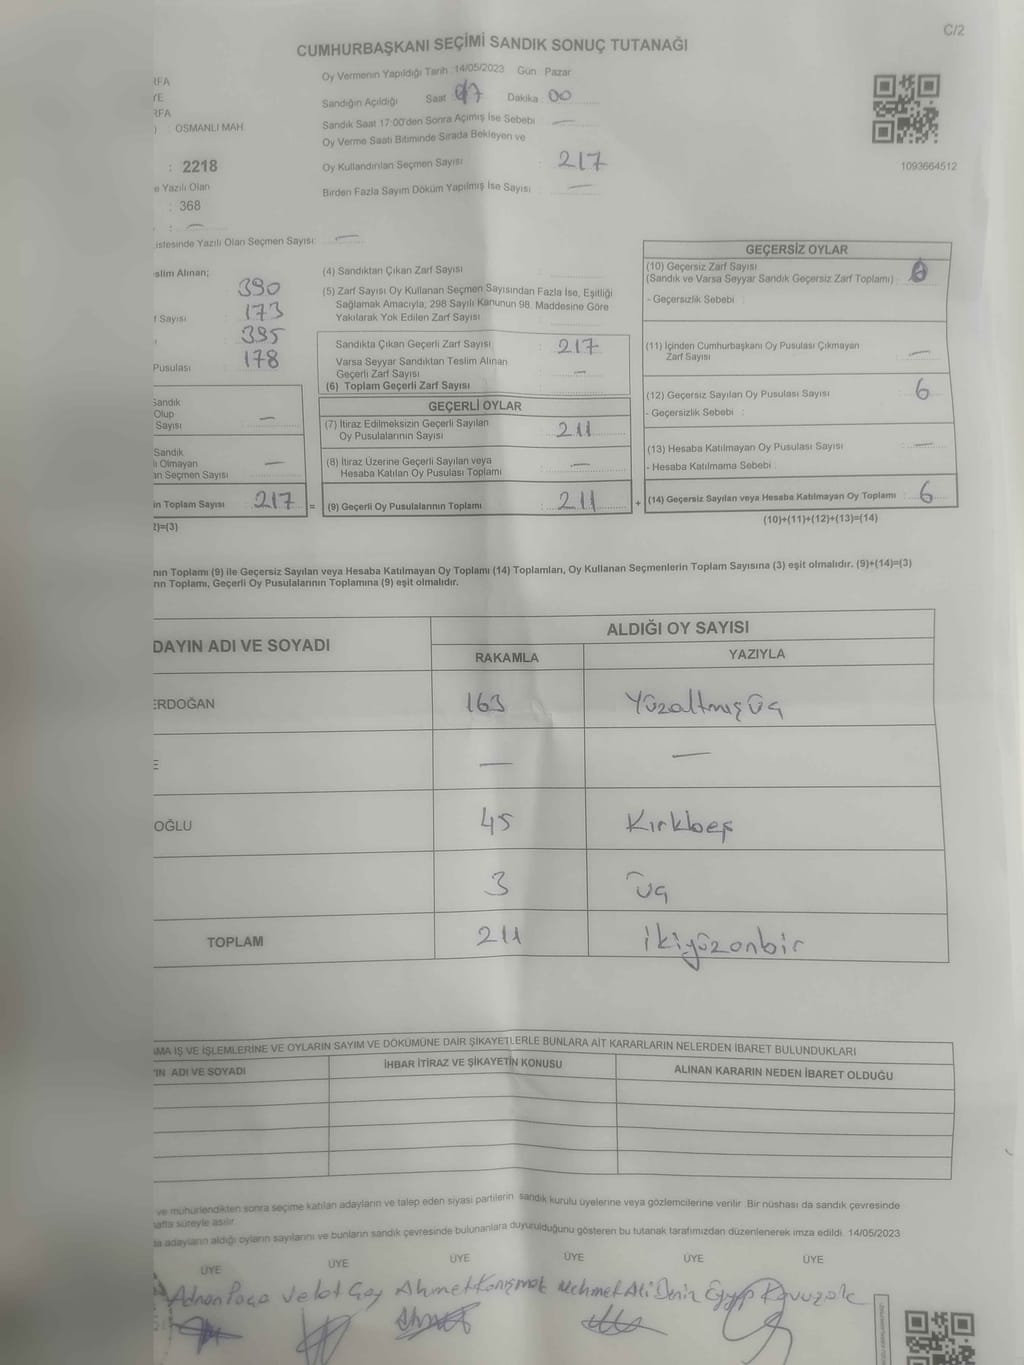 C/2
CUMHURBAŞKANI SEÇİMİ SANDIK SONUÇ TUTANAĞI
Oy Vermenin Yapıldığı Tarih :14/05/2023 Gün Pazar
Sandığın Açıldığı Saat 17 Dakika : 00
Sandık Saat 17:00'den Sonra Açımış İse Sebebi : —
Oy Verme Saati Bitiminde Sırada Bekleyen ve
Oy Kullandırılan Seçmen Sayısı : 217
Birden Fazla Sayım Döküm Yapılmış İse Sayısı : —
1093664512
RFA
YE
RFA
) : OSMANLI MAH.
: 2218
e Yazılı Olan
: 368
: —
istesinde Yazılı Olan Seçmen Sayısı: —
slim Alınan;
390
f Sayısı 173
395
Pusulası 178
Sandık
Olup
Sayısı —
Sandık
lı Olmayan
ın Seçmen Sayısı —
in Toplam Sayısı 217 =
2)=(3)
(4) Sandıktan Çıkan Zarf Sayısı
(5) Zarf Sayısı Oy Kullanan Seçmen Sayısından Fazla İse, Eşitliği
Sağlamak Amacıyla, 298 Sayılı Kanunun 98. Maddesine Göre
Yakılarak Yok Edilen Zarf Sayısı
Sandıkta Çıkan Geçerli Zarf Sayısı : 217
Varsa Seyyar Sandıktan Teslim Alınan
Geçerli Zarf Sayısı —
(6) Toplam Geçerli Zarf Sayısı
GEÇERLİ OYLAR
(7) İtiraz Edilmeksizin Geçerli Sayılan
Oy Pusulalarının Sayısı : 211
(8) İtiraz Üzerine Geçerli Sayılan veya
Hesaba Katılan Oy Pusulası Toplamı : —
(9) Geçerli Oy Pusulalarının Toplamı : 211 +
GEÇERSİZ OYLAR
(10) Geçersiz Zarf Sayısı
(Sandık ve Varsa Seyyar Sandık Geçersiz Zarf Toplamı) :
- Geçersizlik Sebebi :
(11) İçinden Cumhurbaşkanı Oy Pusulası Çıkmayan
Zarf Sayısı : —
(12) Geçersiz Sayılan Oy Pusulası Sayısı : 6
- Geçersizlik Sebebi :
(13) Hesaba Katılmayan Oy Pusulası Sayısı : —
- Hesaba Katılmama Sebebi :
(14) Geçersiz Sayılan veya Hesaba Katılmayan Oy Toplamı : 6
(10)+(11)+(12)+(13)=(14)
nın Toplamı (9) ile Geçersiz Sayılan veya Hesaba Katılmayan Oy Toplamı (14) Toplamları, Oy Kullanan Seçmenlerin Toplam Sayısına (3) eşit olmalıdır. (9)+(14)=(3)
rın Toplamı, Geçerli Oy Pusulalarının Toplamına (9) eşit olmalıdır.
DAYIN ADI VE SOYADI
ALDIĞI OY SAYISI
RAKAMLA YAZIYLA
ERDOĞAN 163 Yüzaltmışüç
E — —
OĞLU 45 Kırkbeş
3 üç
TOPLAM 211 ikiyüzonbir
AMA İŞ VE İŞLEMLERİNE VE OYLARIN SAYIM VE DÖKÜMÜNE DAİR ŞİKAYETLERLE BUNLARA AİT KARARLARIN NELERDEN İBARET BULUNDUKLARI
'IN ADI VE SOYADI İHBAR İTİRAZ VE ŞİKAYETİN KONUSU ALINAN KARARIN NEDEN İBARET OLDUĞU
ve mühürlendikten sonra seçime katılan adayların ve talep eden siyasi partilerin sandık kurulu üyelerine veya gözlemcilerine verilir. Bir nüshası da sandık çevresinde
hafta süreyle asılır.
da adayların aldığı oyların sayılarını ve bunların sandık çevresinde bulunanlara duyurulduğunu gösteren bu tutanak tarafımızdan düzenlenerek imza edildi. 14/05/2023
ÜYE ÜYE ÜYE ÜYE ÜYE ÜYE
Adnan Ahmet Konışmak Mehmet Ali Deniz Eyyp